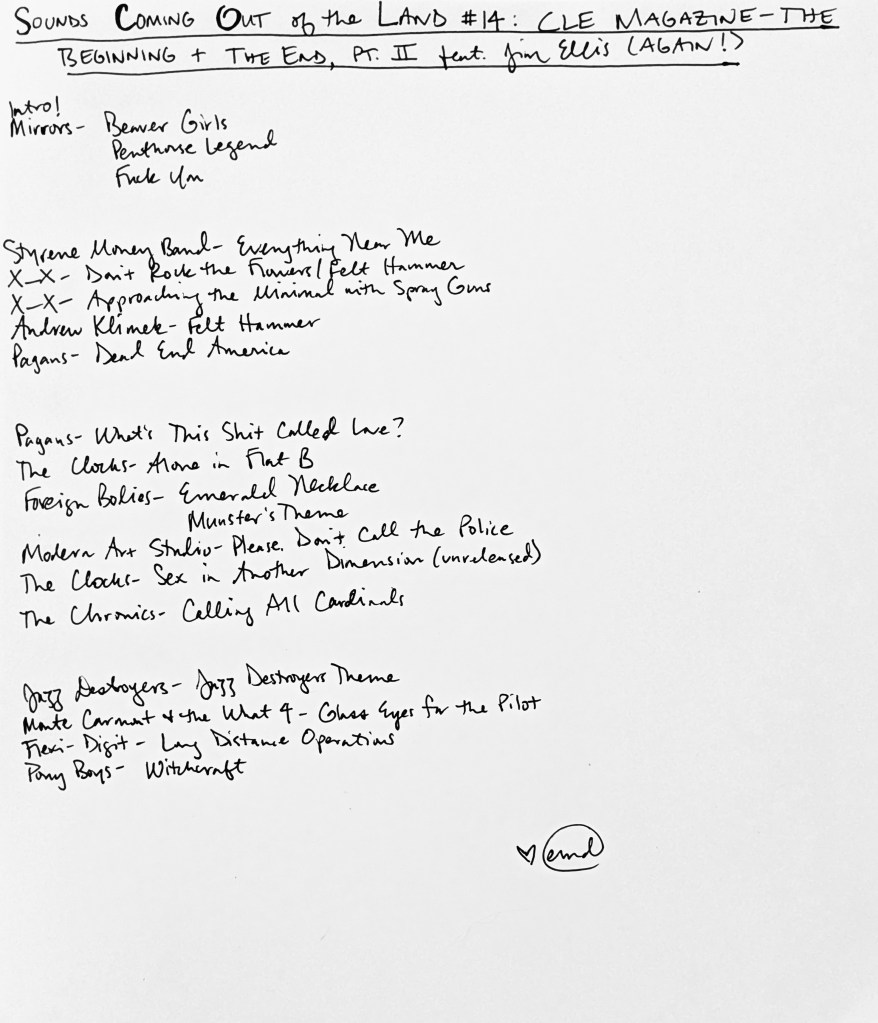 SOUNDS COMING OUT of the LAND #14: CLE MAGAZINE - THE
BEGINNING + THE END, PT. II feat. Jim Ellis (AGAIN!)
Intro!
Mirrors- Beaver Girls
Penthouse Legend
Fuck You
Styrene Money Band- Everything Near Me
X_X- Don't Rock the Flowers/Felt Hammer
X-X- Approaching the Minimal with Spray Guns
Andrew Klimek- Felt Hammer
Pagans- Dead End America
Pagans- What's This Shit Called Love?
The Clocks- Alone in Flat B
Foreign Bodies- Emerald Necklace
Munster's Theme
Modern Art Studio- Please, Don't Call the Police
The Clocks- Sex in Another Dimension (unreleased)
The Chronics- Calling All Cardinals
Jazz Destroyers- Jazz Destroyers Theme
Monte Carmont & the What 4- Glass Eyes for the Pilot
Flexi-Digit- Long Distance Operations
Pony Boys- Witchcraft
♡ emd